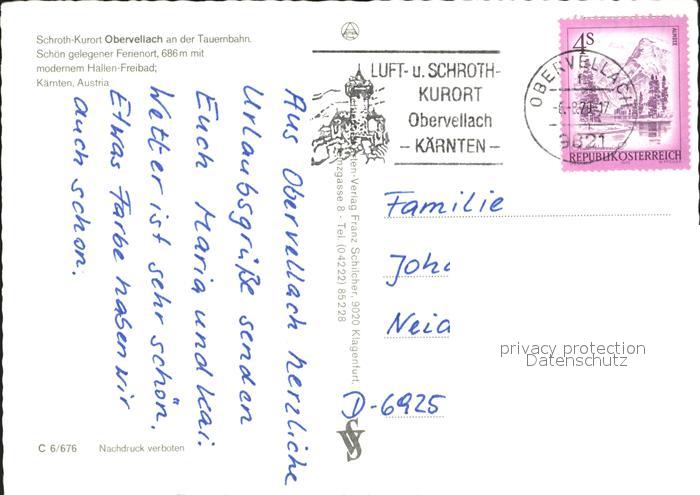 Schroth-Kurort Obervellach an der Tauernbahn.
Schön gelegener Ferienort, 686 m mit
modernem Hallen-Freibad;
Kärnten, Austria
Aus Obervellach herzliche
Urlaubsgrüße senden
Euch Maria und Kai.
Wetter ist sehr schön.
Etwas Farbe haben wir
auch schon.
C 6/676 Nachdruck verboten
LUFT- u. SCHROTH-
KURORT
Obervellach
– KÄRNTEN –
OBERVELLACH
9821
4S
ALMSEE
REPUBLIK ÖSTERREICH
en-Verlag Franz Schilcher, 9020 Klagenfurt,
gasse 8 - Tel. (04222) 85 2 28
Familie
Joh
Neid
D-6925
privacy protection
Datenschutz